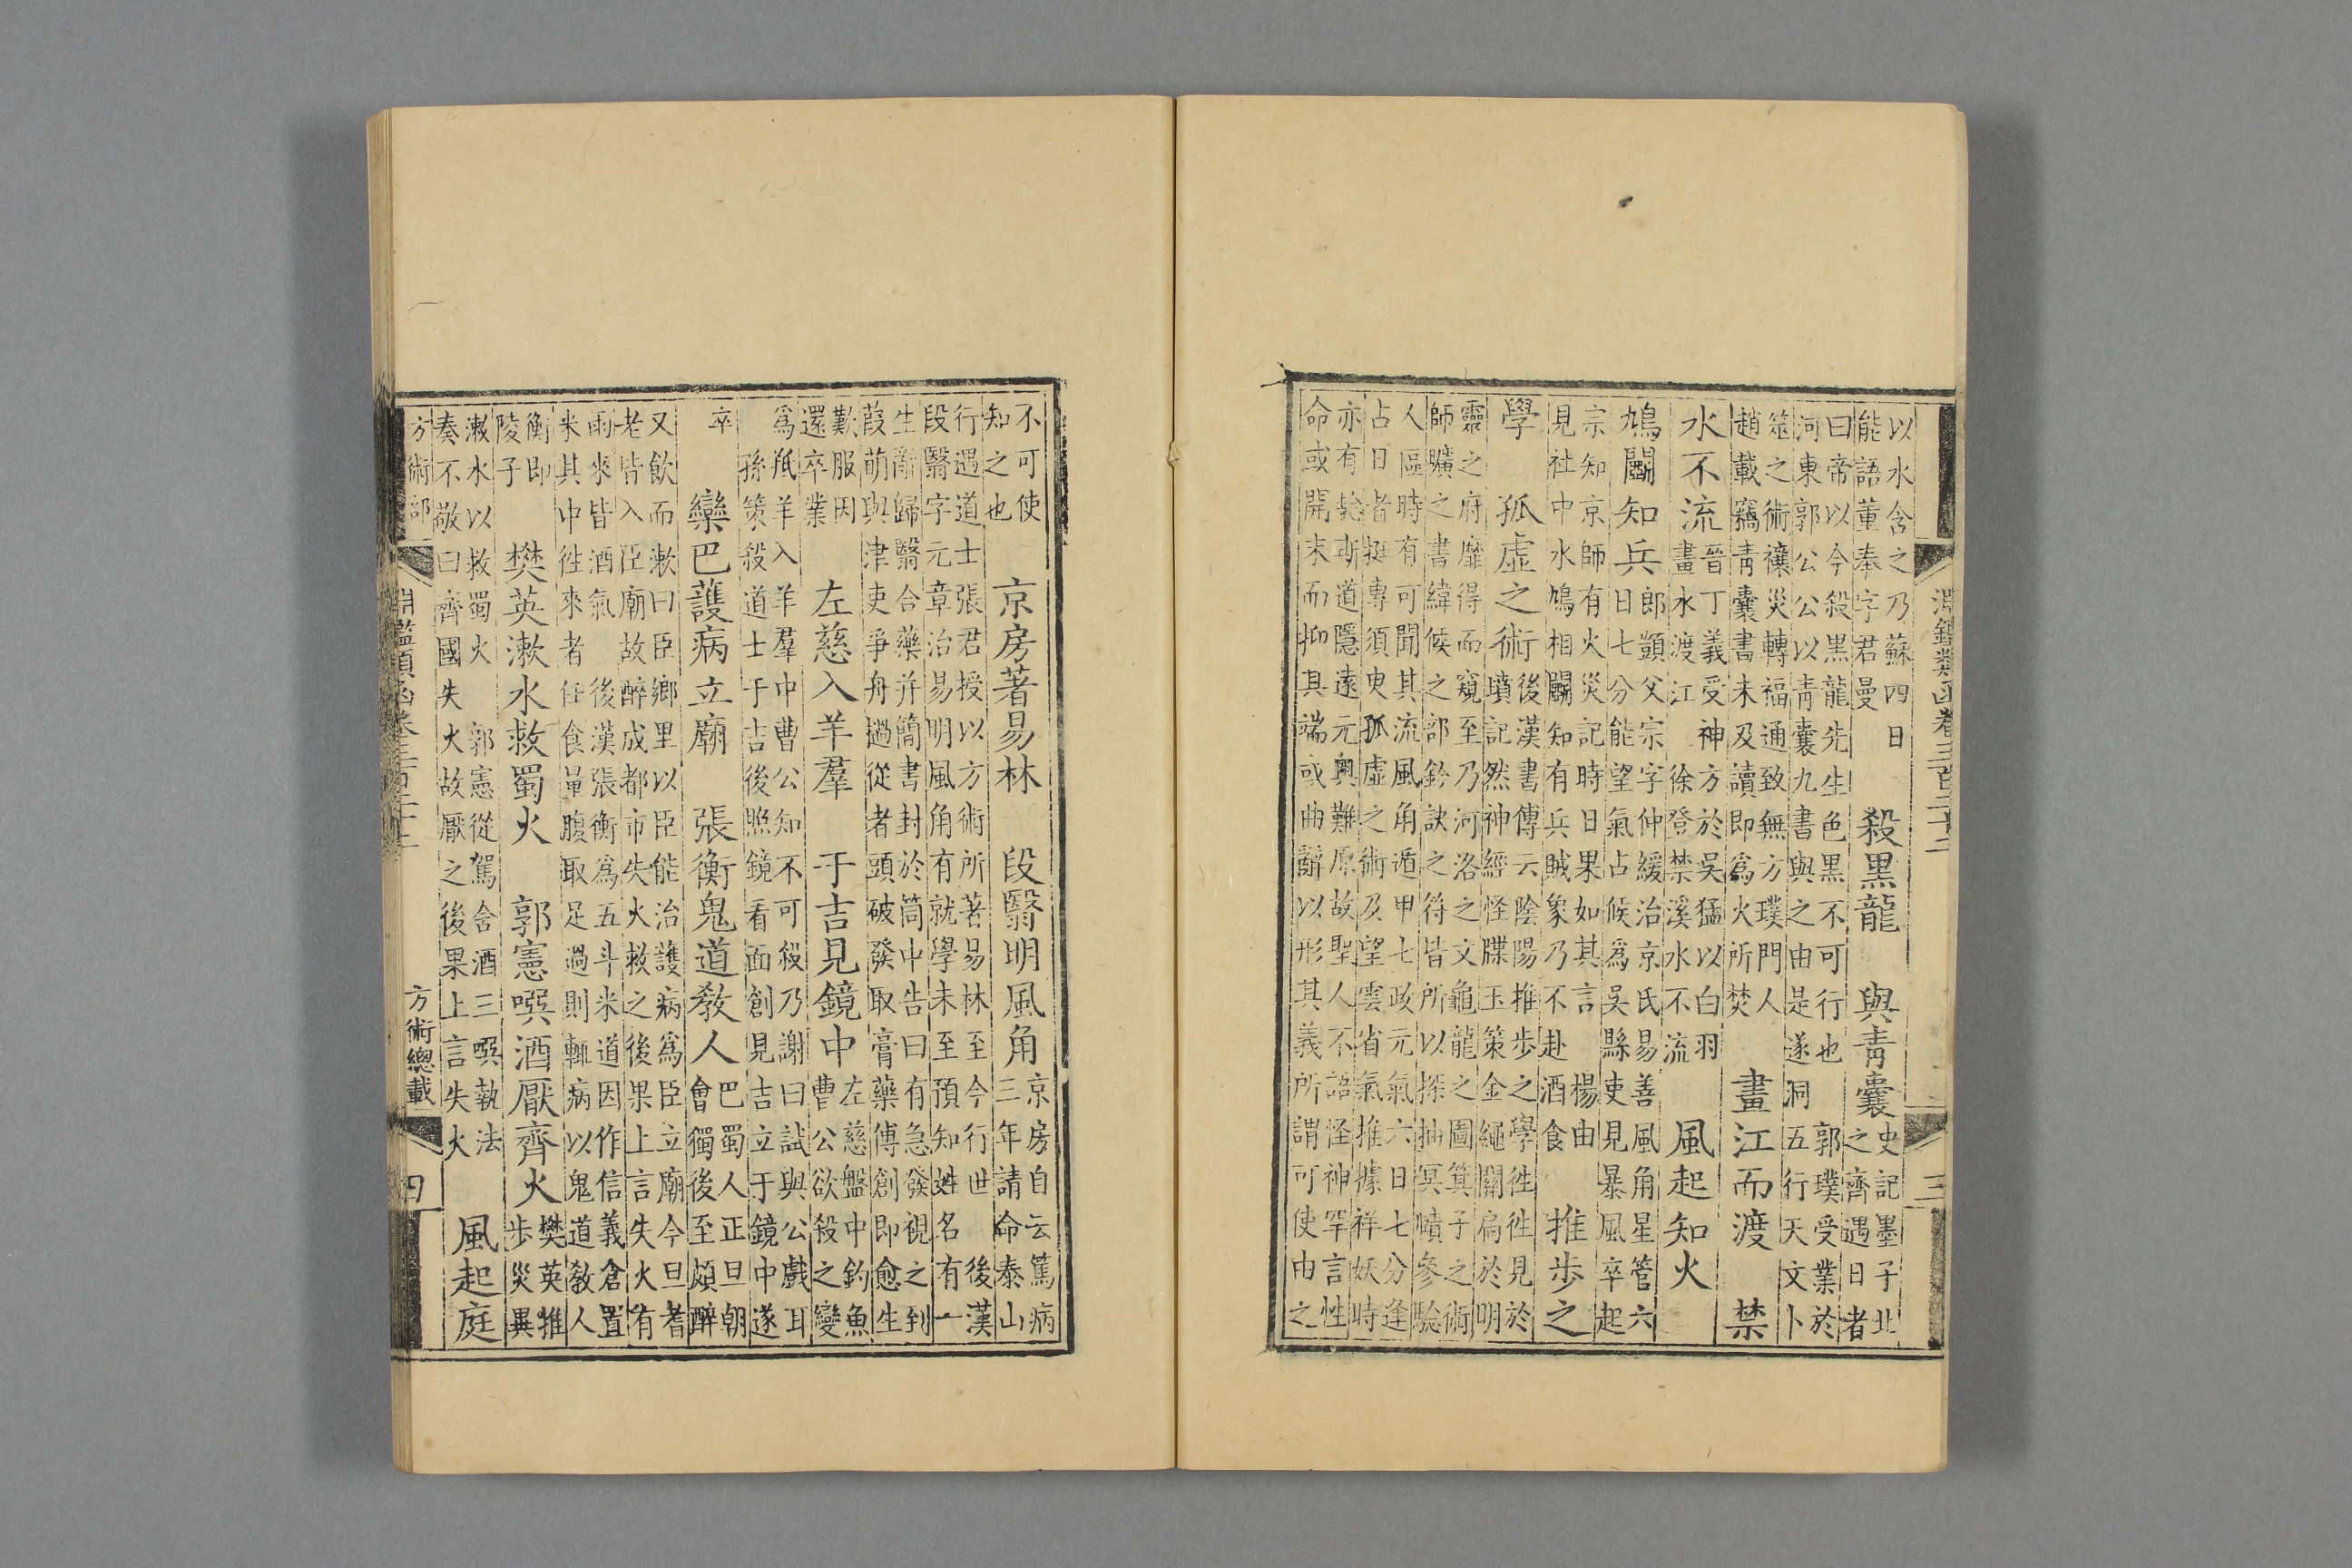 淵鑑類函卷三百二十二　三
以水含之乃蘇四日
能語董奉字君
殺黑龍　與青囊
史記墨子北
之齊遇日者
曰帝以今殺黑龍先生色黑不可行也　郭璞受業於
河東郭公公以青囊九書與之由是遂洞五行天文卜
筮之術禳災轉福通致無方璞門人
趙載竊青囊書未及讀即爲火所焚
畫江而渡　禁
水不流
晉丁義受神方於吳猛以白羽
畫水渡江　徐登禁溪水不流
風起知火
鳩鬭知兵
郎顗父宗字仲緩治京氏易善風角星管六
日七分能望氣占候爲吳縣吏見暴風卒起
宗知京師有火災記時日果如其言　楊由
見社中水鳩相鬭知有兵賊象乃不赴酒食
推步之
學　孤虛之術
後漢書傳云陰陽推步之學徃徃見於
墳記然神經怪牒玉策金繩關扃於明
靈之府靡得而窺至乃河洛之文龜龍之圖箕子之術
師曠之書緯候之部鈐訣之符皆所以探抽冥賾參驗
人區時有可聞其流風角遁甲七政元氣六日七分逢
占日者挺專須臾孤虛之術及望雲省氣推據祥妖時
亦有於斯道隱遠元奧難原故聖人不語怪神罕言性
命或開末而抑其端或曲辭以形其義所謂可使由之
不可使
知之也
京房著易林　段翳明風角
京房自云篤病
三年請命泰山
行遇道士張君授以方術所著易林至今行世　後漢
段翳字元章治易明風角有就學未至預知姓名有一
生辭歸翳合藥并簡書封於筒中告曰有急發視之到
葭萌與津吏爭舟撾從者頭破發取膏藥傅創即愈生
歎服因
還卒業
左慈入羊羣　于吉見鏡中
左慈盤中釣魚
曹公欲殺之變
爲羝羊入羊羣中曹公知不可殺乃謝曰試與公戲耳
孫策殺道士于吉後照鏡看面創見吉立于鏡中遂
卒
欒巴護病立廟　張衡鬼道教人
巴蜀人正旦朝
會獨後至頗醉
又飲而漱曰臣鄉里以臣能治護病爲臣立廟今旦耆
老皆入臣廟故醉成都市失火救之後果上言失火有
雨來皆酒氣　後漢張衡爲五斗米道因作信義倉置
米其中徃來者任食量腹取足過則輒病以鬼道教人
衡即
陵子
樊英漱水救蜀火　郭憲噀酒厭齊火
樊英推
步災異
漱水以救蜀火　郭憲從駕含酒三噀執法
奏不敬曰齊國失火故厭之後果上言失火
風起庭
方術部　淵鑑類函卷三百二十二　方術總載　四